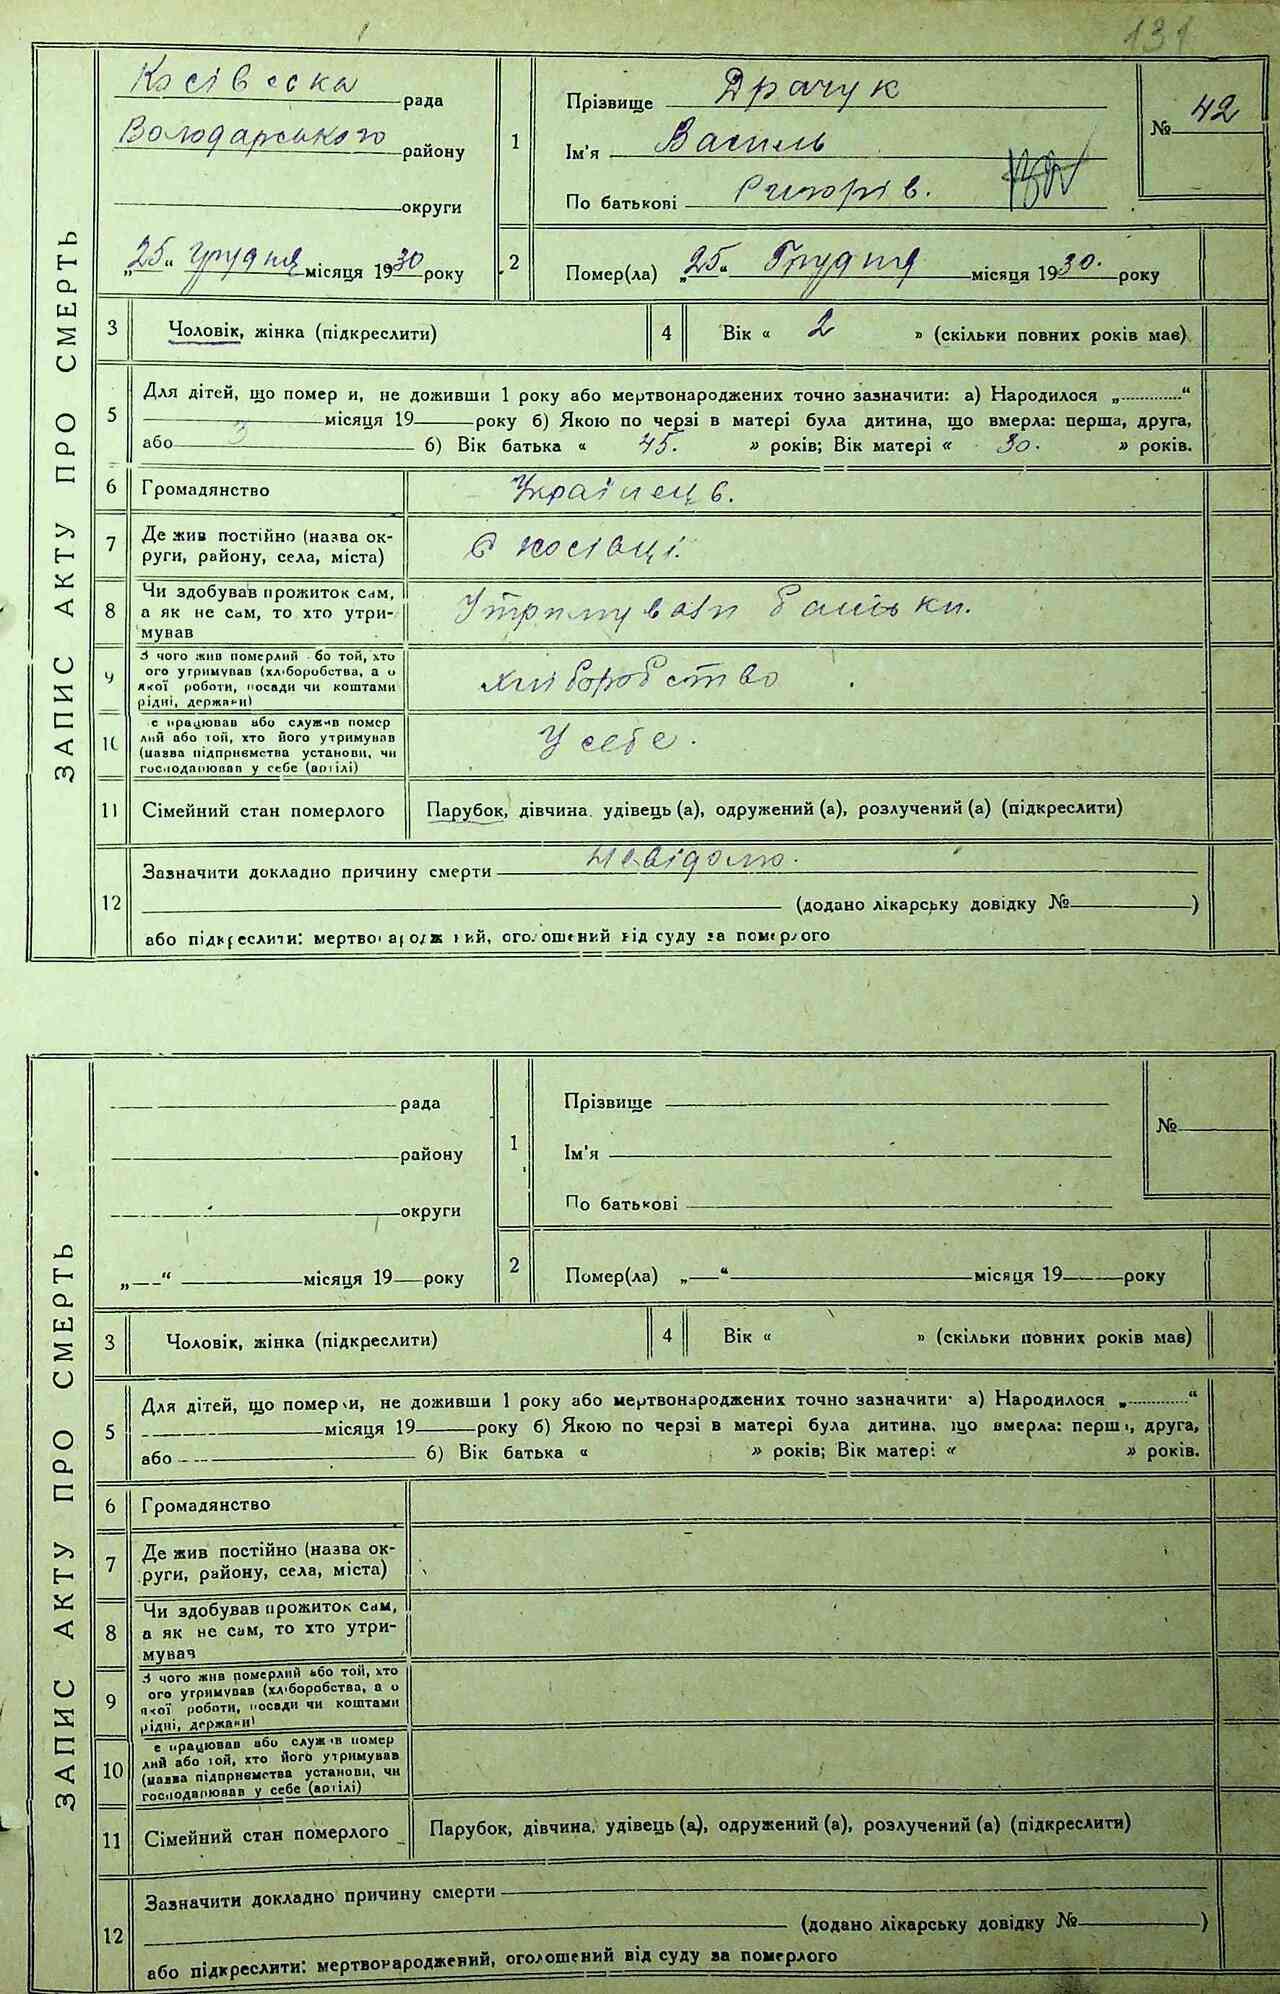 131
ЗАПИС АКТУ ПРО СМЕРТЬ
Косівська рада
Володарського району
округи
„25“ грудня місяця 1930 року
1
Прізвище Драчук
Ім'я Василь
По батькові Григорів.
№ 42
2
Помер(ла) „25“ Грудня місяця 1930. року
3
Чоловік, жінка (підкреслити)
4
Вік « 2 » (скільки повних років має)
5
Для дітей, що помер и, не доживши 1 року або мертвонароджених точно зазначити: а) Народилося „............“
місяця 19 року б) Якою по черзі в матері була дитина, що вмерла: перша, друга,
або 3 б) Вік батька « 45. » років; Вік матері « 30. » років.
6
Громадянство Українец в.
7
Де жив постійно (назва ок-
руги, району, села, міста)
в косівці.
8
Чи здобував прожиток сам,
а як не сам, то хто утри-
мував
Утримували батьки.
9
З чого жив померлий бо той, хто
ого утримував (хліборобства, а о
якої роботи, посади чи коштами
рідні, держави)
хліборобство
10
е працював або служив помер
лий або той, хто його утримував
(назва підприємства установи, чи
господарював у себе (артілі)
У себе.
11
Сімейний стан померлого
Парубок, дівчина, удівець (а), одружений (а), розлучений (а) (підкреслити)
12
Зазначити докладно причину смерти невідомо.
(додано лікарську довідку № )
або підкреслити: мертвонароджений, оголошений від суду за померлого
ЗАПИС АКТУ ПРО СМЕРТЬ
рада
району
округи
„ “ місяця 19 року
1
Прізвище
Ім'я
По батькові
№
2
Помер(ла) „ “ місяця 19 року
3
Чоловік, жінка (підкреслити)
4
Вік « » (скільки повних років має)
5
Для дітей, що помери, не доживши 1 року або мертвонароджених точно зазначити: а) Народилося „............“
місяця 19 року б) Якою по черзі в матері була дитина, що вмерла: перша, друга,
або б) Вік батька « » років; Вік матері « » років.
6
Громадянство
7
Де жив постійно (назва ок-
руги, району, села, міста)
8
Чи здобував прожиток сам,
а як не сам, то хто утри-
мував
9
З чого жив померлий або той, хто
ого утримував (хліборобства, а о
якої роботи, посади чи коштами
рідні, держави)
10
е працював або служив помер
лий або той, хто його утримував
(назва підприємства установи, чи
господарював у себе (артілі)
11
Сімейний стан померлого
Парубок, дівчина, удівець (а), одружений (а), розлучений (а) (підкреслити)
12
Зазначити докладно причину смерти
(додано лікарську довідку № )
або підкреслити: мертвонароджений, оголошений від суду за померлого